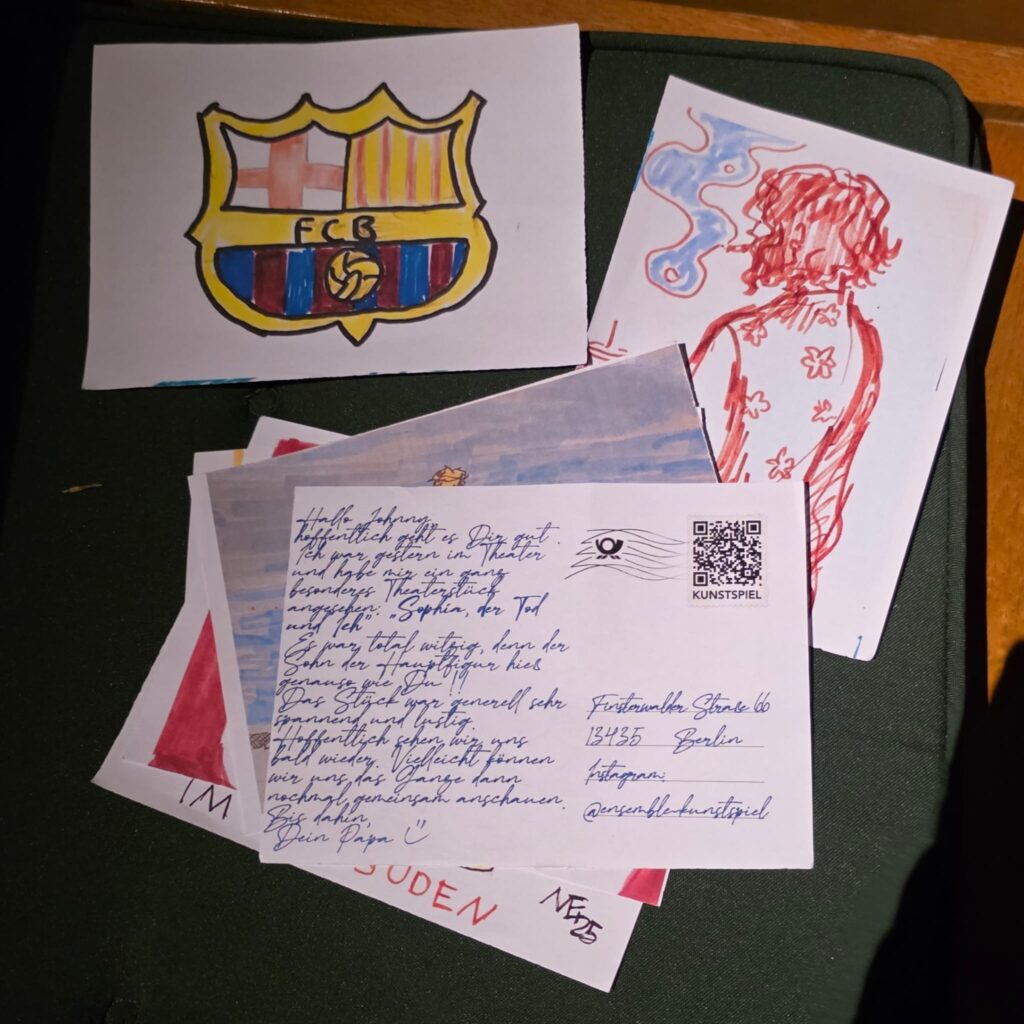 FCB
Hallo Johnny,
hoffentlich geht es Dir gut.
Ich war gestern im Theater
und habe mir ein ganz
besonderes Theaterstück
angesehen: "Sophia, der Tod
und Ich".
Es war total witzig, denn der
Sohn der Hauptfigur hieß
genauso wie Du !!
Das Stück war generell sehr
spannend und lustig.
Hoffentlich sehen wir uns
bald wieder. Vielleicht können
wir uns das Ganze dann
nochmal gemeinsam anschauen.
Bis dahin,
Dein Papa
KUNSTSPIEL
Finsterwalder Straße 66
13435 Berlin
Instagram:
@ensemble.kunstspiel
IM
SÜDEN
NE25